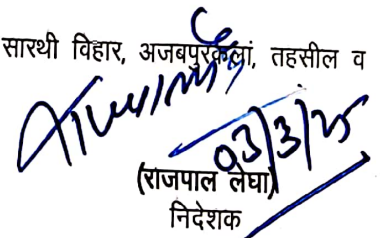 सारथी विहार, अजबपुरकलां, तहसील व
03/3/25
(राजपाल लेघा)
निदेशक